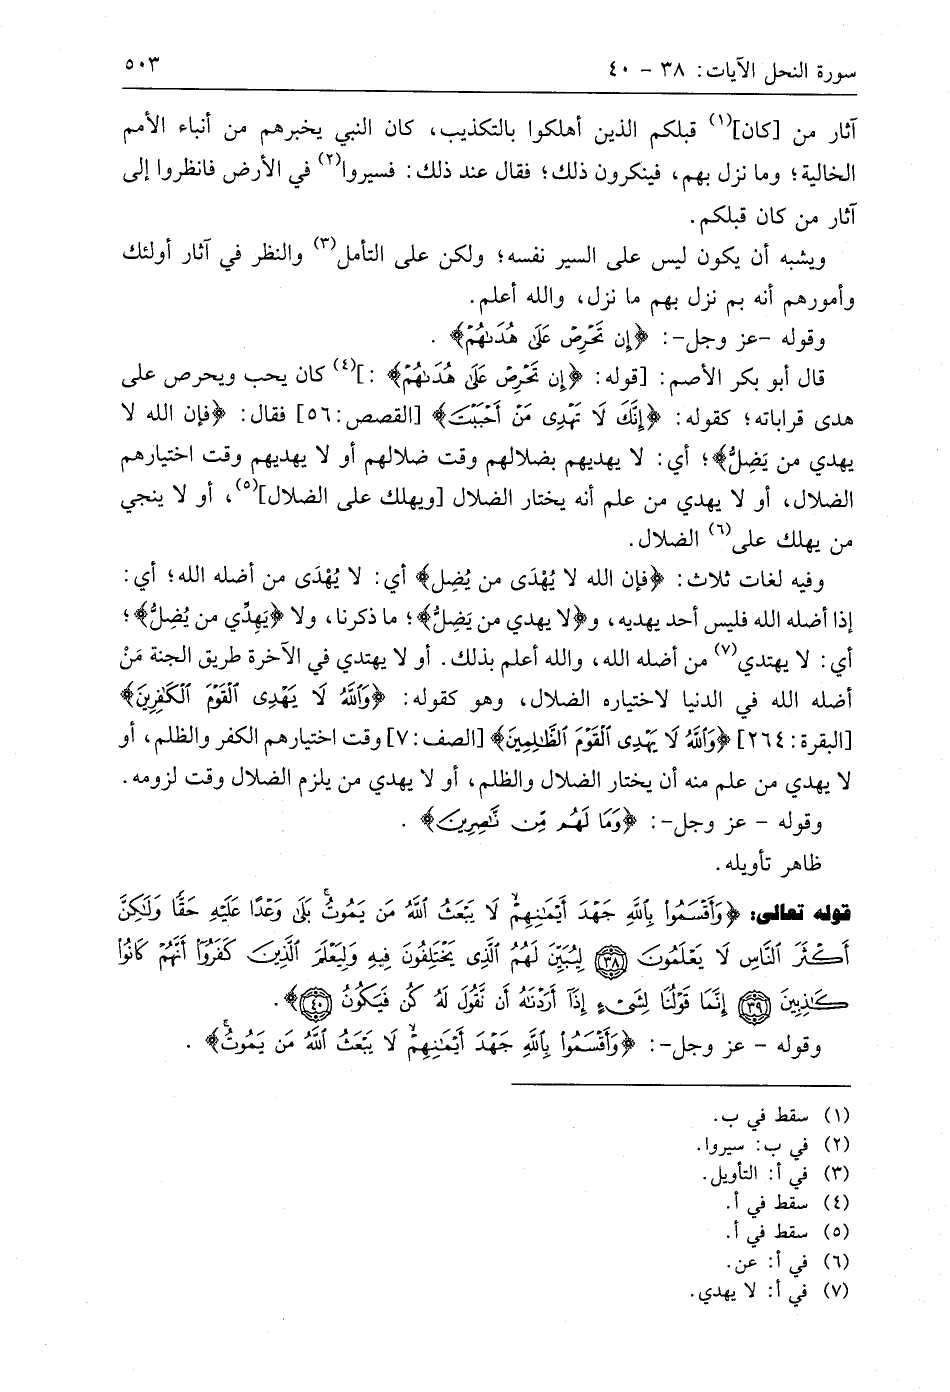 سورة النحل الآيات: ٣٨ - ٤٠
٥٠٣
آثار من [كان](١) قبلكم الذين أهلكوا بالتكذيب، كان النبي يخبرهم من أنباء الأمم
الخالية؛ وما نزل بهم، فينكرون ذلك؛ فقال عند ذلك: فسيروا(٢) في الأرض فانظروا إلى
آثار من كان قبلكم.
ويشبه أن يكون ليس على السير نفسه؛ ولكن على التأمل(٣) والنظر في آثار أولئك
وأمورهم أنه بم نزل بهم ما نزل، والله أعلم.
وقوله -عز وجل-: ﴿إِن تَحْرِصْ عَلَىٰ هُدَىٰهُمْ﴾ .
قال أبو بكر الأصم: [قوله: ﴿إِن تَحْرِصْ عَلَىٰ هُدَىٰهُمْ﴾ :](٤) كان يحب ويحرص على
هدى قراباته؛ كقوله: ﴿إِنَّكَ لَا تَهْدِى مَنْ أَحْبَبْتَ﴾ [القصص:٥٦] فقال: ﴿فإن الله لا
يهدي من يَضِلُّ﴾؛ أي: لا يهديهم بضلالهم وقت ضلالهم أو لا يهديهم وقت اختيارهم
الضلال، أو لا يهدي من علم أنه يختار الضلال [ويهلك على الضلال](٥)، أو لا ينجي
من يهلك على(٦) الضلال.
وفيه لغات ثلاث: ﴿فإن الله لا يُهْدَى من يُضِل﴾ أي: لا يُهْدَى من أضله الله؛ أي:
إذا أضله الله فليس أحد يهديه، و﴿لا يهدي من يَضِلُّ﴾؛ ما ذكرنا، ولا ﴿يَهِدِّي من يُضِلُّ﴾؛
أي: لا يهتدي(٧) من أضله الله، والله أعلم بذلك. أو لا يهتدي في الآخرة طريق الجنة مَنْ
أضله الله في الدنيا لاختياره الضلال، وهو كقوله: ﴿وَٱللَّهُ لَا يَهْدِى ٱلْقَوْمَ ٱلْكَٰفِرِينَ﴾
[البقرة:٢٦٤] ﴿وَٱللَّهُ لَا يَهْدِى ٱلْقَوْمَ ٱلظَّٰلِمِينَ﴾ [الصف:٧] وقت اختيارهم الكفر والظلم، أو
لا يهدي من علم منه أن يختار الضلال والظلم، أو لا يهدي من يلزم الضلال وقت لزومه.
وقوله - عز وجل-: ﴿وَمَا لَهُم مِّن نَّٰصِرِينَ﴾ .
ظاهر تأويله.
قوله تعالى: ﴿وَأَقْسَمُوا۟ بِٱللَّهِ جَهْدَ أَيْمَٰنِهِمْ ۙ لَا يَبْعَثُ ٱللَّهُ مَن يَمُوتُ ۚ بَلَىٰ وَعْدًا عَلَيْهِ حَقًّا وَلَٰكِنَّ
أَكْثَرَ ٱلنَّاسِ لَا يَعْلَمُونَ ٣٨ لِيُبَيِّنَ لَهُمُ ٱلَّذِى يَخْتَلِفُونَ فِيهِ وَلِيَعْلَمَ ٱلَّذِينَ كَفَرُوٓا۟ أَنَّهُمْ كَانُوا۟
كَٰذِبِينَ ٣٩ إِنَّمَا قَوْلُنَا لِشَىْءٍ إِذَآ أَرَدْنَٰهُ أَن نَّقُولَ لَهُۥ كُن فَيَكُونُ ٤٠﴾.
وقوله - عز وجل-: ﴿وَأَقْسَمُوا۟ بِٱللَّهِ جَهْدَ أَيْمَٰنِهِمْ ۙ لَا يَبْعَثُ ٱللَّهُ مَن يَمُوتُ ۚ﴾ .
(١) سقط في ب.
(٢) في ب: سيروا.
(٣) في أ: التأويل.
(٤) سقط في أ.
(٥) سقط في أ.
(٦) في أ: عن.
(٧) في أ: لا يهدي.